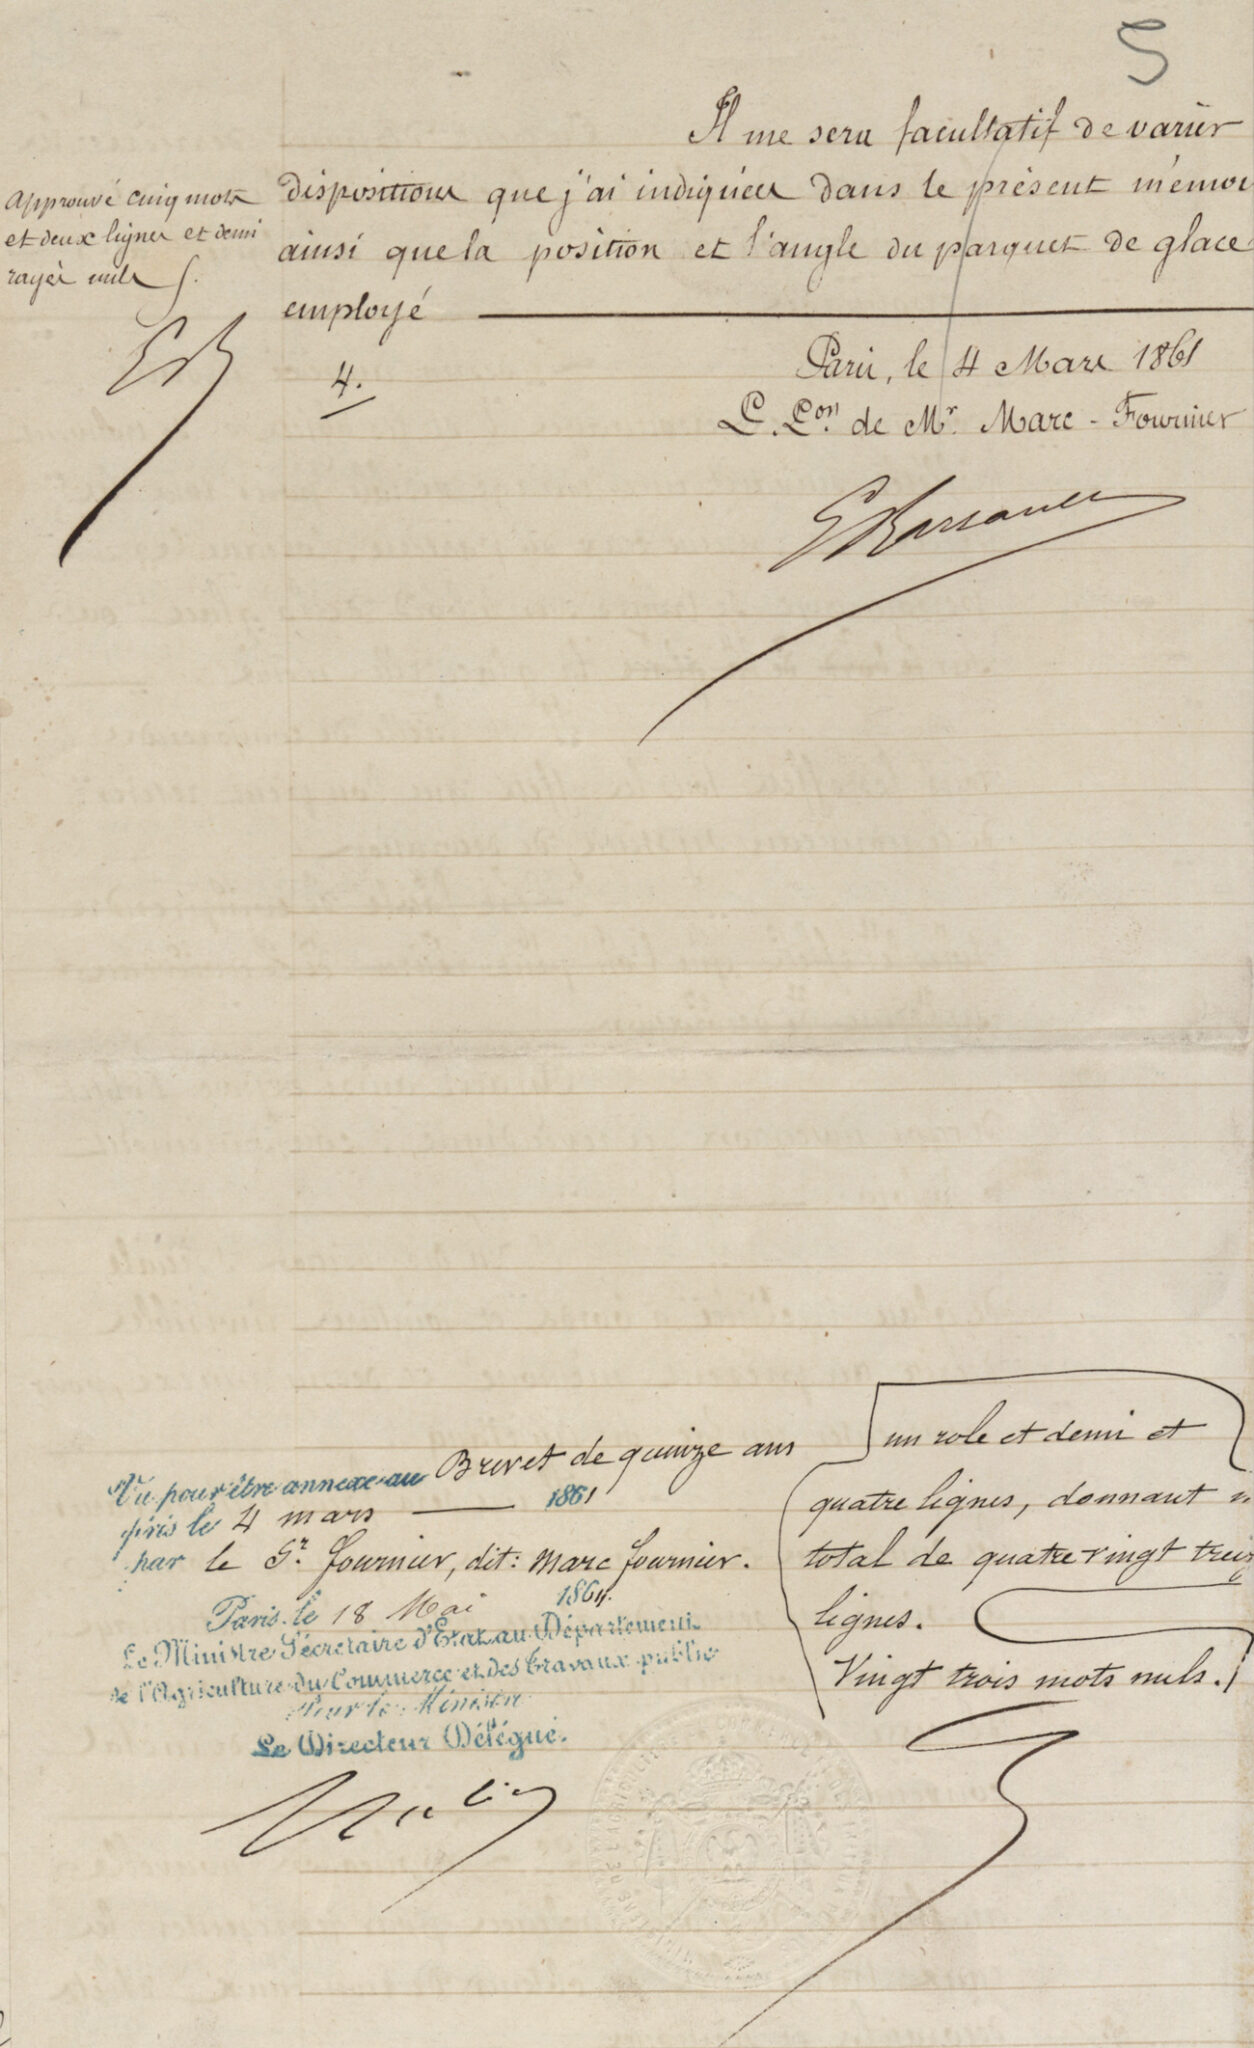 5
Il me sera facultatif de varier
dispositions que j'ai indiquées dans le présent mémoi
ainsi que la position et l'angle du parquet de glace
employé
Approuvé cinq mots
et deux lignes et demi
rayés nuls
4.
Paris, le 4 Mars 1861
P. Pon. de Mr. Marc - Fournier
Vu pour être annexé au Brevet de quinze ans
pris le 4 mars 1861
par le Sr. fournier, dit: Marc fournier.
Paris, le 18 Mai 1861.
Le Ministre Sécretaire d'Etat au Département
de l'Agriculture du Commerce et des travaux publics
Pour le Ministre
Le Directeur Délégué.
un role et demi et
quatre lignes, donnant
total de quatre vingt treize
lignes.
Vingt trois mots nuls.